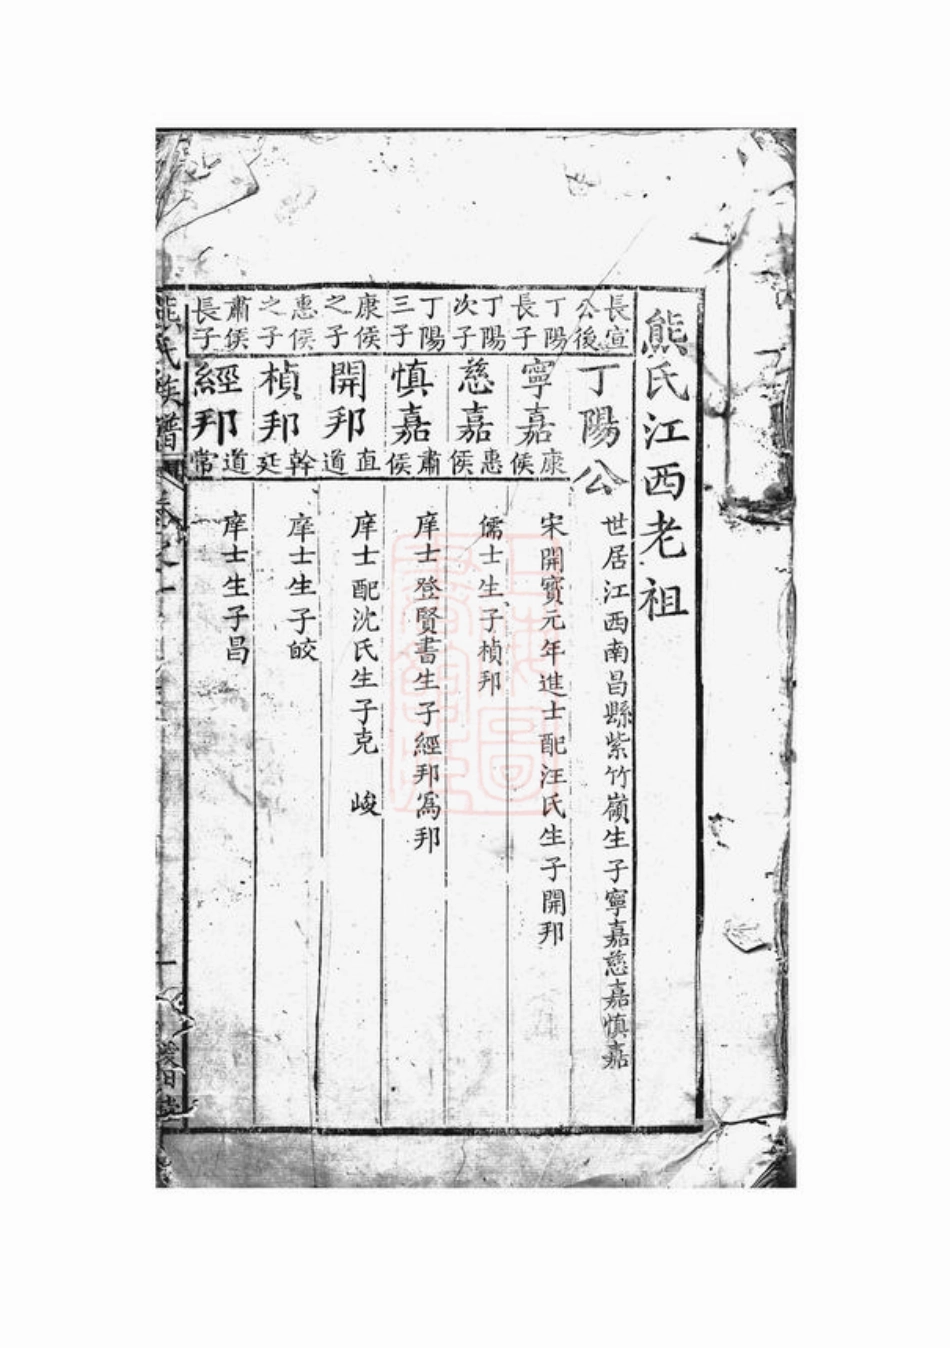 熊氏江西老祖
長宣公後
丁陽公
世居江西南昌縣紫竹嶺生子寧嘉慈嘉慎嘉
丁陽長子
寧嘉
康侯
宋開寳元年進士配汪氏生子開邦
丁陽次子
慈嘉
惠侯
儒士生子楨邦
丁陽三子
慎嘉
肅侯
庠士登賢書生子經邦為邦
康侯之子
開邦
直道
庠士配沈氏生子克 峻
惠侯之子
楨邦
幹延
庠士生子皎
肅侯長子
經邦
道常
庠士生子昌
熊氏族譜